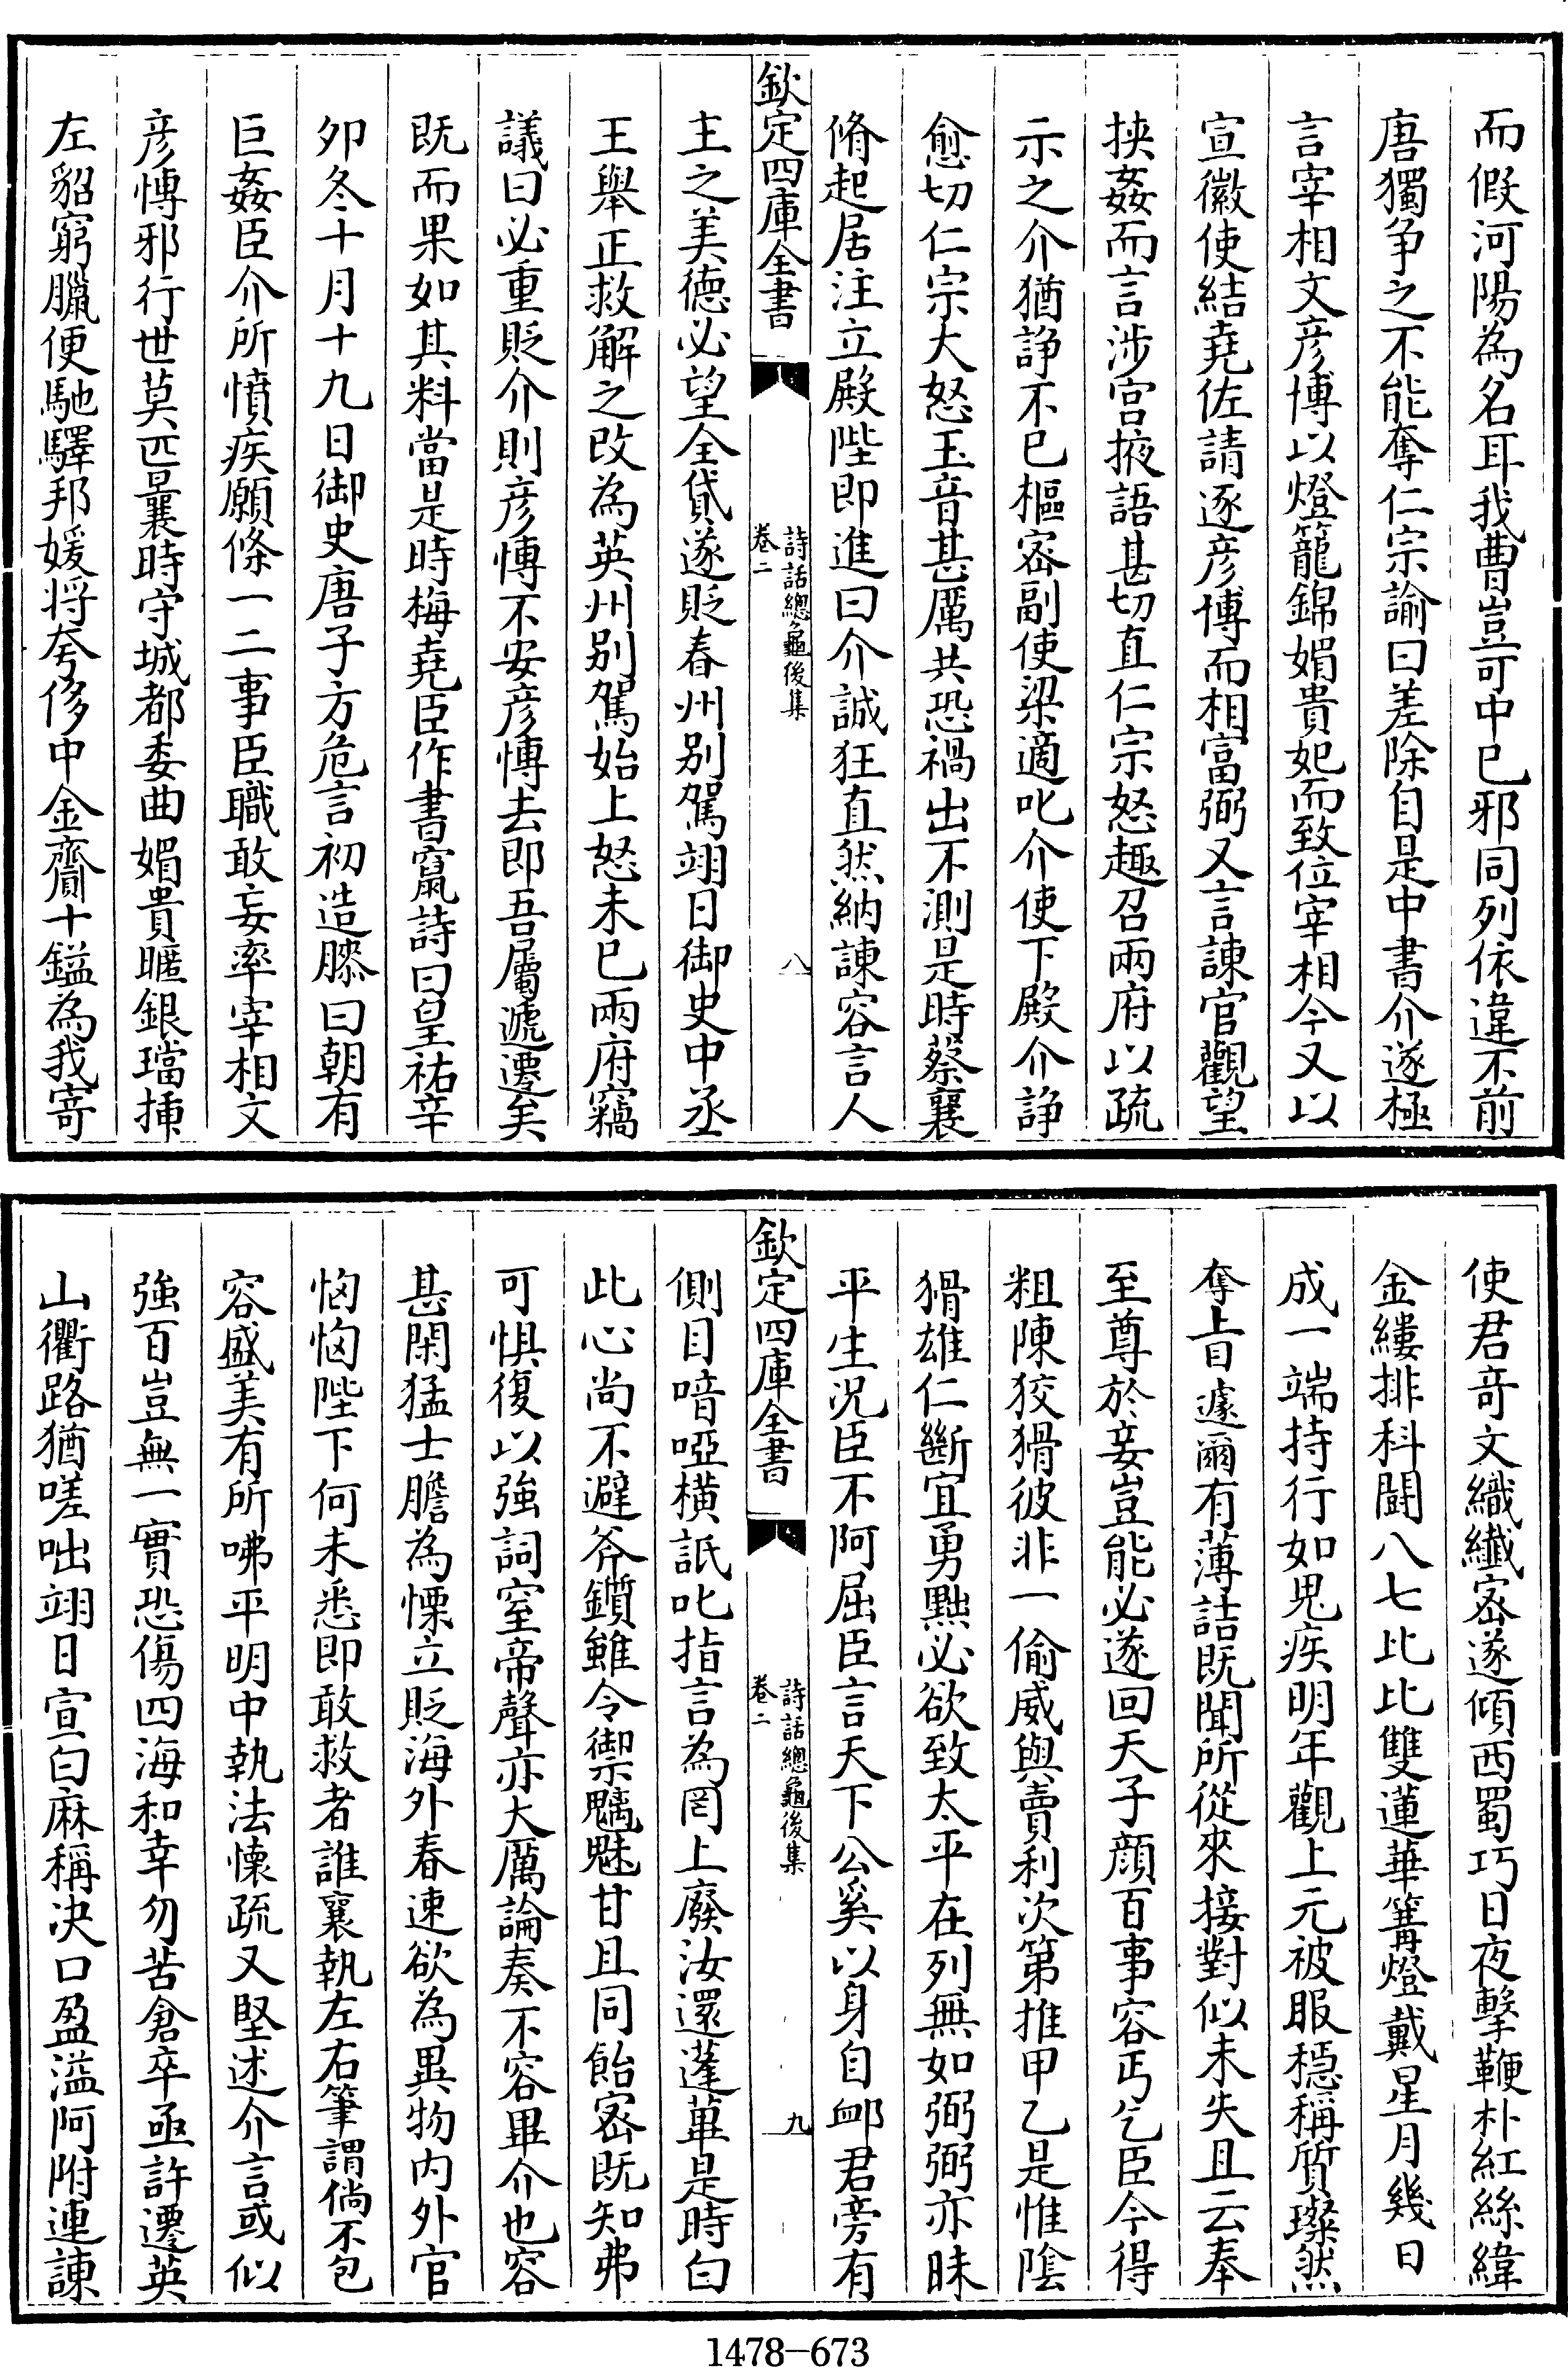 而假河陽為名耳我曹豈可中已邪同列依違不前
唐獨争之不能奪仁宗諭曰差除自是中書介遂極
言宰相文彦博以燈籠錦媚貴妃而致位宰相今又以
宣徽使結堯佐請逐彦博而相富弼又言諫官觀望
挾姦而言涉宫掖語甚切直仁宗怒趣召兩府以疏
示之介猶諍不已樞密副使梁適叱介使下殿介諍
愈切仁宗大怒玉音甚厲共恐禍出不測是時蔡襄
脩起居注立殿陛即進曰介誠狂直然納諌容言人
欽定四庫全書
詩話總龜後集
卷二
八
主之美德必望全貸遂貶春州别駕翊日御史中丞
王舉正救解之改為英州别駕始上怒未已兩府竊
議曰必重貶介則彦博不安彦博去即吾屬遞遷矣
既而果如其料當是時梅堯臣作書竄詩曰皇祐辛
夘冬十月十九日御史唐子方危言初造膝曰朝有
巨姦臣介所憤疾願條一二事臣職敢妄率宰相文
彦博邪行世莫匹曩時守城都委曲媚貴暱銀璫揷
左貂窮臘便馳驛邦媛將夸侈中金齎十鎰為我寄
使君奇文織纖密遂傾西蜀巧日夜擊鞭朴紅絲緯
金縷排科鬭八七比比雙蓮華篝燈戴星月幾日
成一端持行如鬼疾明年觀上元被服穏稱質璨然
奪上目遽爾有薄詰既聞所從來接對似未失且云奉
至尊於妾豈能必遂回天子顔百事容丐乞臣今得
粗陳狡猾彼非一偷威與賣利次第推甲乙是惟陰
猾雄仁斷宜勇黜必欲致太平在列無如弼弼亦昧
平生况臣不阿屈臣言天下公奚以身自䘏君旁有
欽定四庫全書
詩話總龜後集
卷二
九
側目喑啞橫詆叱指言為罔上廢汝還蓬蓽是時白
此心尚不避斧鑕雖令禦魑魅甘且同飴密既知弗
可惧復以強詞窒帝聲亦大厲論奏不容畢介也容
甚閑猛士膽為慄立貶海外春速欲為異物内外官
恟恟陛下何未悉即敢救者誰襄執左右筆謂倘不包
容盛美有所咈平明中執法懐疏又堅述介言或似
強百豈無一實恐傷四海和幸勿苦倉卒亟許遷英
山衢路猶嗟咄翊日宣白麻稱决口盈溢阿附連諫
1478-673